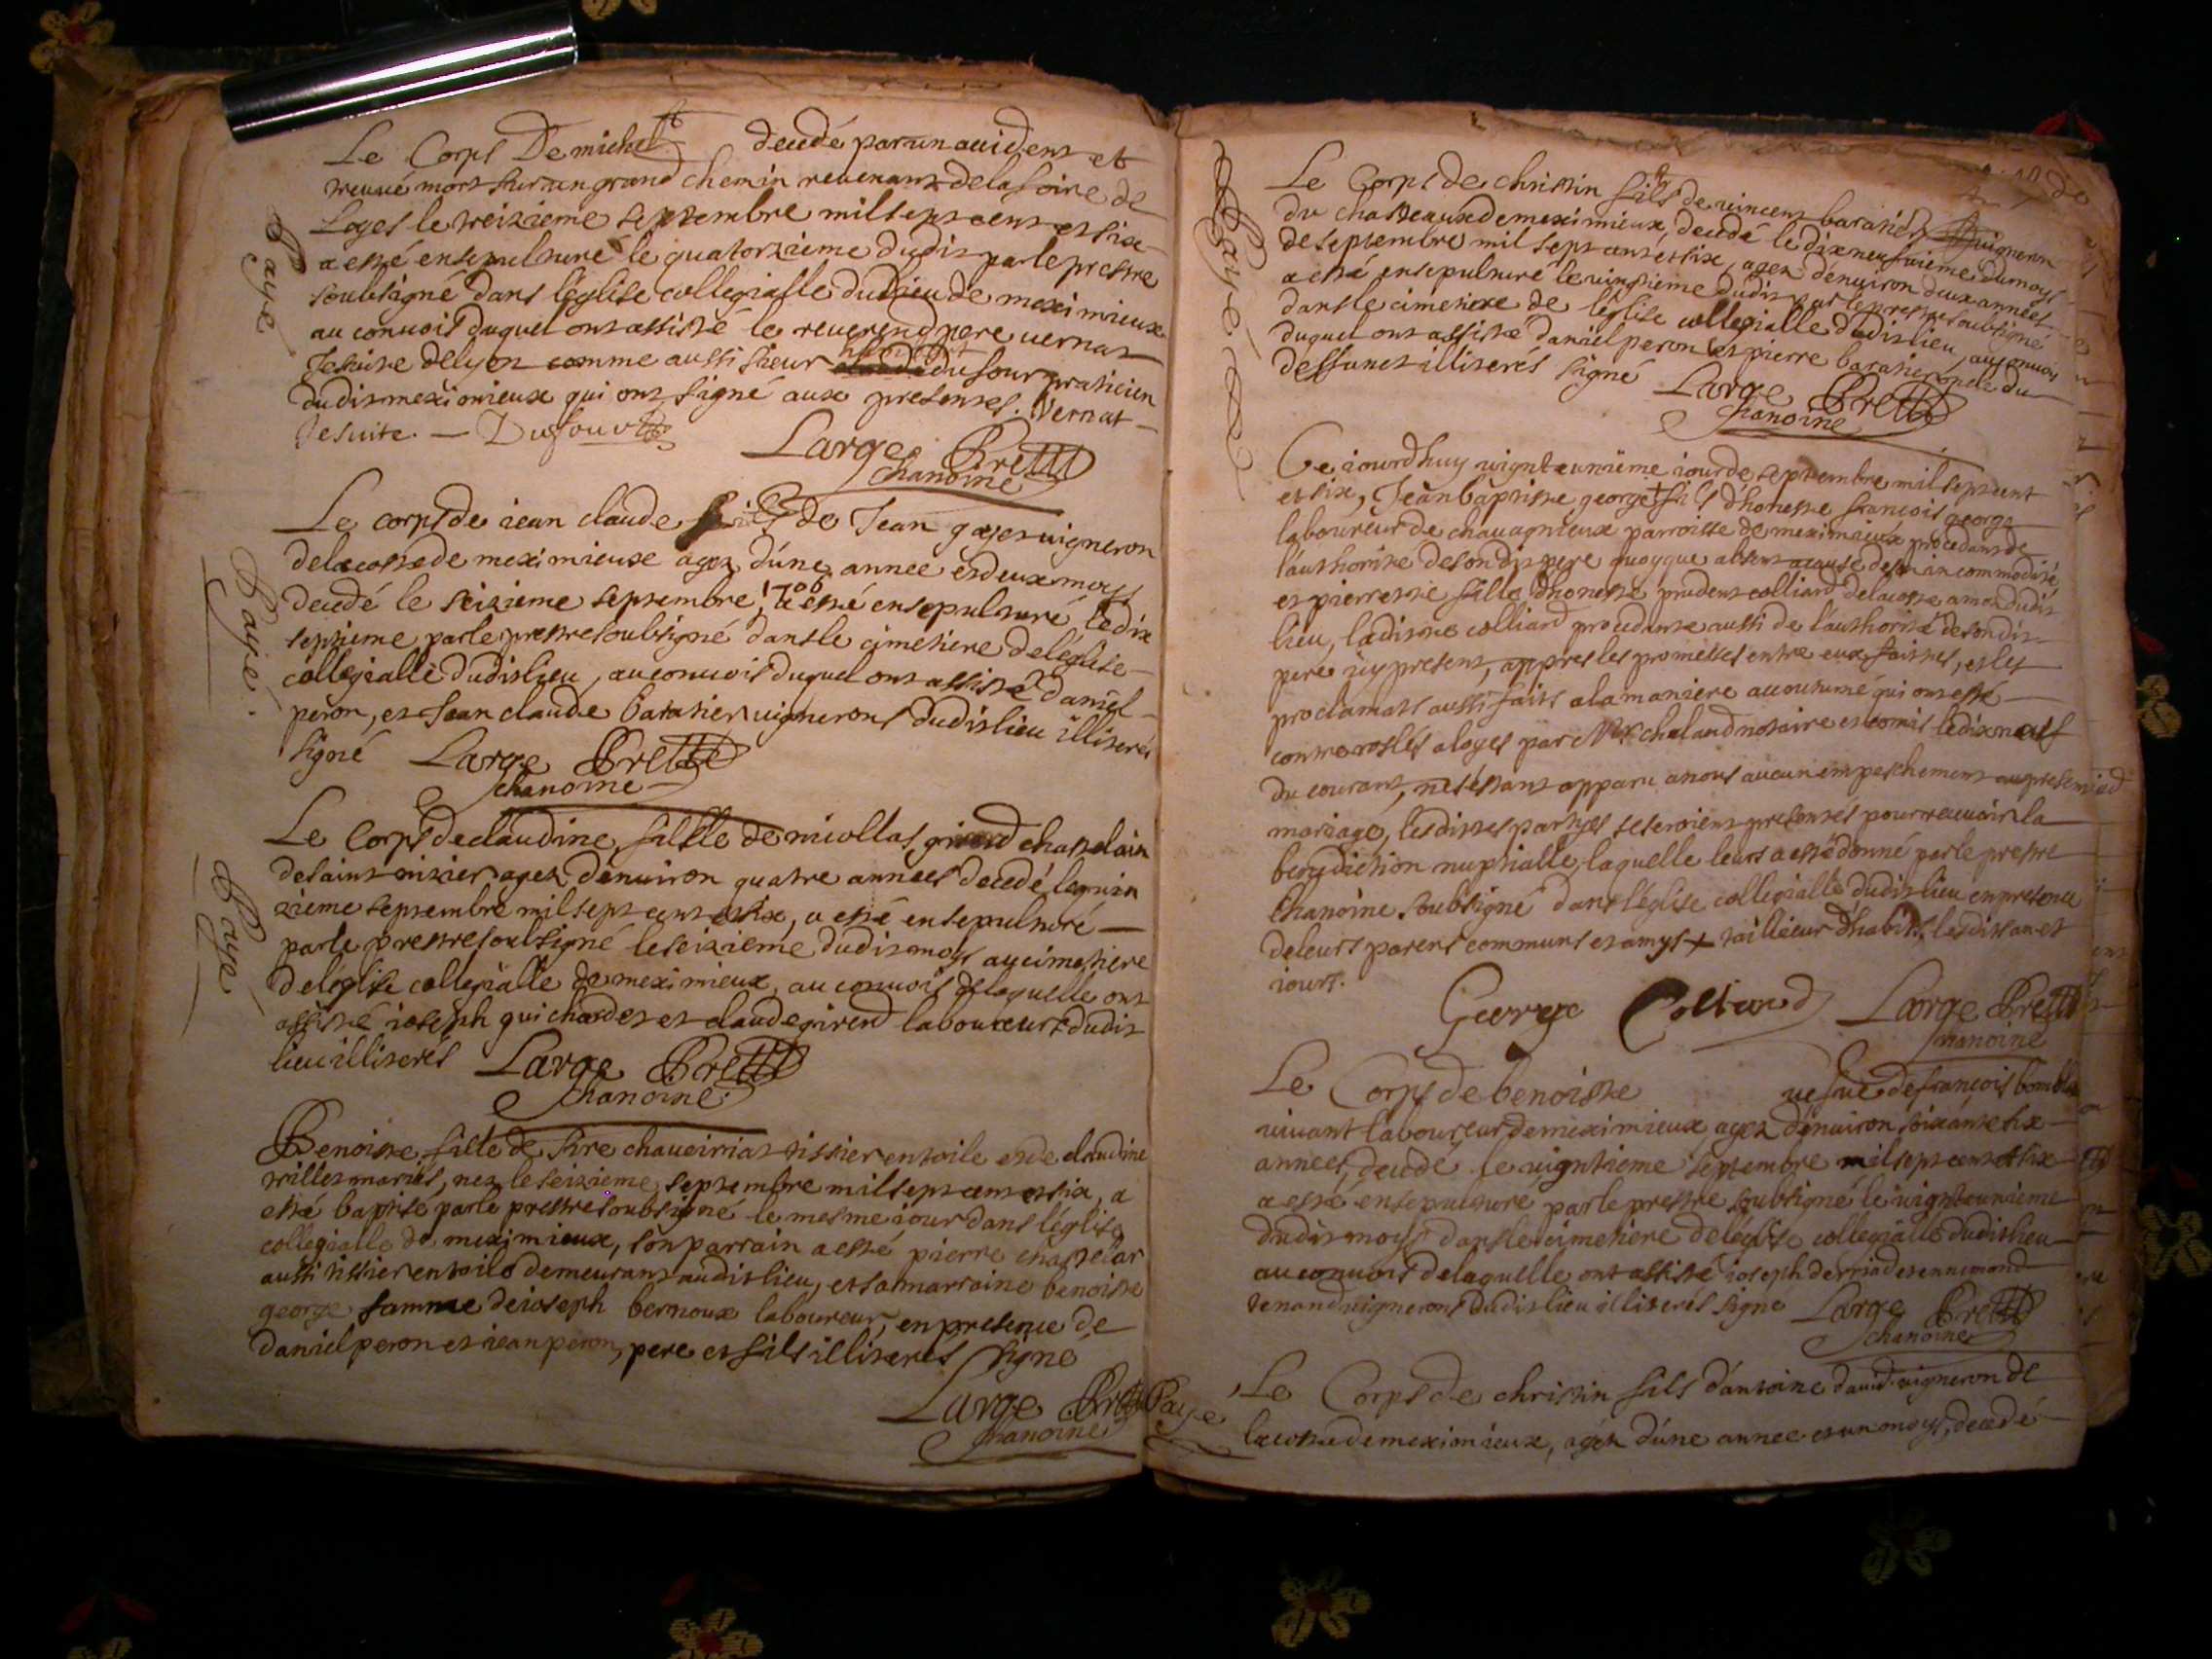 Le Corps De michel decedé par un accident et
treuué mort sur un grand chemin reuenant de la foire de
Loyes le treizieme septembre mil sept cent et six
a esté ensepulturé le quatorzieme dudit par le prestre
soubsigné dans l'église collegialle du dit lieu de meximieux
au conuoit duquel ont assisté le reuerend pere uernat
Jesuite de lyon comme aussi sieur du four praticien
dudit meximieux qui ont signé aux presentes. Vernat
Jesuite. — Dufour
Large Pretre
chanoine
Paye
Le corps de iean claude fils de Jean gayet uigneron
de la coste de meximieux agez d'une annee et deux moys
decedé le seizieme septembre 1706 a esté ensepulturé le dix
septieme par le prestre soubsigné dans le cimetiere de l'église
collegialle dudit lieu, au conuois duquel ont assisté daniel
peron, et Jean claude baratier uignerons dudit lieu illiterés
signé Large Pretre
chanoine
Payé.
Le Corps de claudine fille de nicollas girerd chastelain
de saint nizier agez d'enuiron quatre années decedé le quin
zieme septembre mil sept cent et six, a esté ensepulturé
par le prestre soubsigné le seizieme dudit moys au cimetiere
de l'église collegialle de meximieux, au conuois de laquelle ont
assisté ioseph guichardet et claude girerd laboureurs dudit
lieu illiterés Large Pretre
chanoine
Paye
Benoiste fille de sire chaueiriat tissier en toile et de claudine
trillet mariés, nez le seizieme septembre mil sept cent et six, a
esté baptisé par le prestre soubsigné le mesme iour dans l'église
collegialle de meximieux, son parrain a esté pierre chastelar
aussi tissier en toile demeurant audit lieu, et sa marraine benoiste
george famme de ioseph bernoux laboureur, en presence de
daniel peron et iean peron, pere et fils illiterés signé
Large Pretre
chanoine
Paye
Le Corps de christin fils de uincent baratier uigneron
du chasteaux de meximieux, decedé le dixneufuieme du moys
de septembre mil sept cent et six, agez d'enuiron deux années
a esté ensepulturé le uingtieme dudit par le prestre soubsigné
dans le cimetiere de l'église collegialle dudit lieu, au conuois
duquel ont assisté daniel peron et pierre baratier oncle du
deffunct illiterés signé Large Pretre
chanoine
Ce iourdhuy uignt et unieme iour de septembre mil sept cent
et six, Jean baptiste george + fils d'honeste francois george
laboureur de chauagnieux parroisse de meximieux procedant de
l'authorité de son dit pere quoyque absent a cause de son incommodité
et pierrette fille d'honeste prudent colliard de la coste amon dudit
lieu, laditte colliard procedante aussi de l'authorité de son dit
pere icy present, appres les promesses entre eux faittes, et les
proclamats aussi faits a la maniere accoutumé qui ont esté
controrollés a loyes par Mr chaland notaire et comis le dixneuf
du courant, ne s'estant apparu a nous aucun empeschement au present
mariage, lesdittes partyes se seroient presentés pour receuoir la
benediction nuptialle, laquelle leurs a esté donné par le prestre
chanoine soubsigné dans l'église collegialle dudit lieu en presence
de leurs parens communs et amys + tailleur d'habits, lesdits an et
iours.
George Colliard Large Pretre
chanoine
Le Corps de benoiste uefue de francois bombla
uiuant laboureur de meximieux, agez d'enuiron soixante six
années, decedé le uigntieme septembre mil sept cent et six
a esté ensepulturé par le prestre soubsigné le uignt et unieme
dudit moys dans le cimetiere de l'église collegialle dudit lieu
au conuois de laquelle ont assisté ioseph derriad et ennemond
tenand uignerons dudit lieu illiterés signé Large Pretre
chanoine
Paye
Le Corps de christin fils d'antoine dauid uigneron de
la coste de meximieux, agéz d'une annee et un moys, decedé